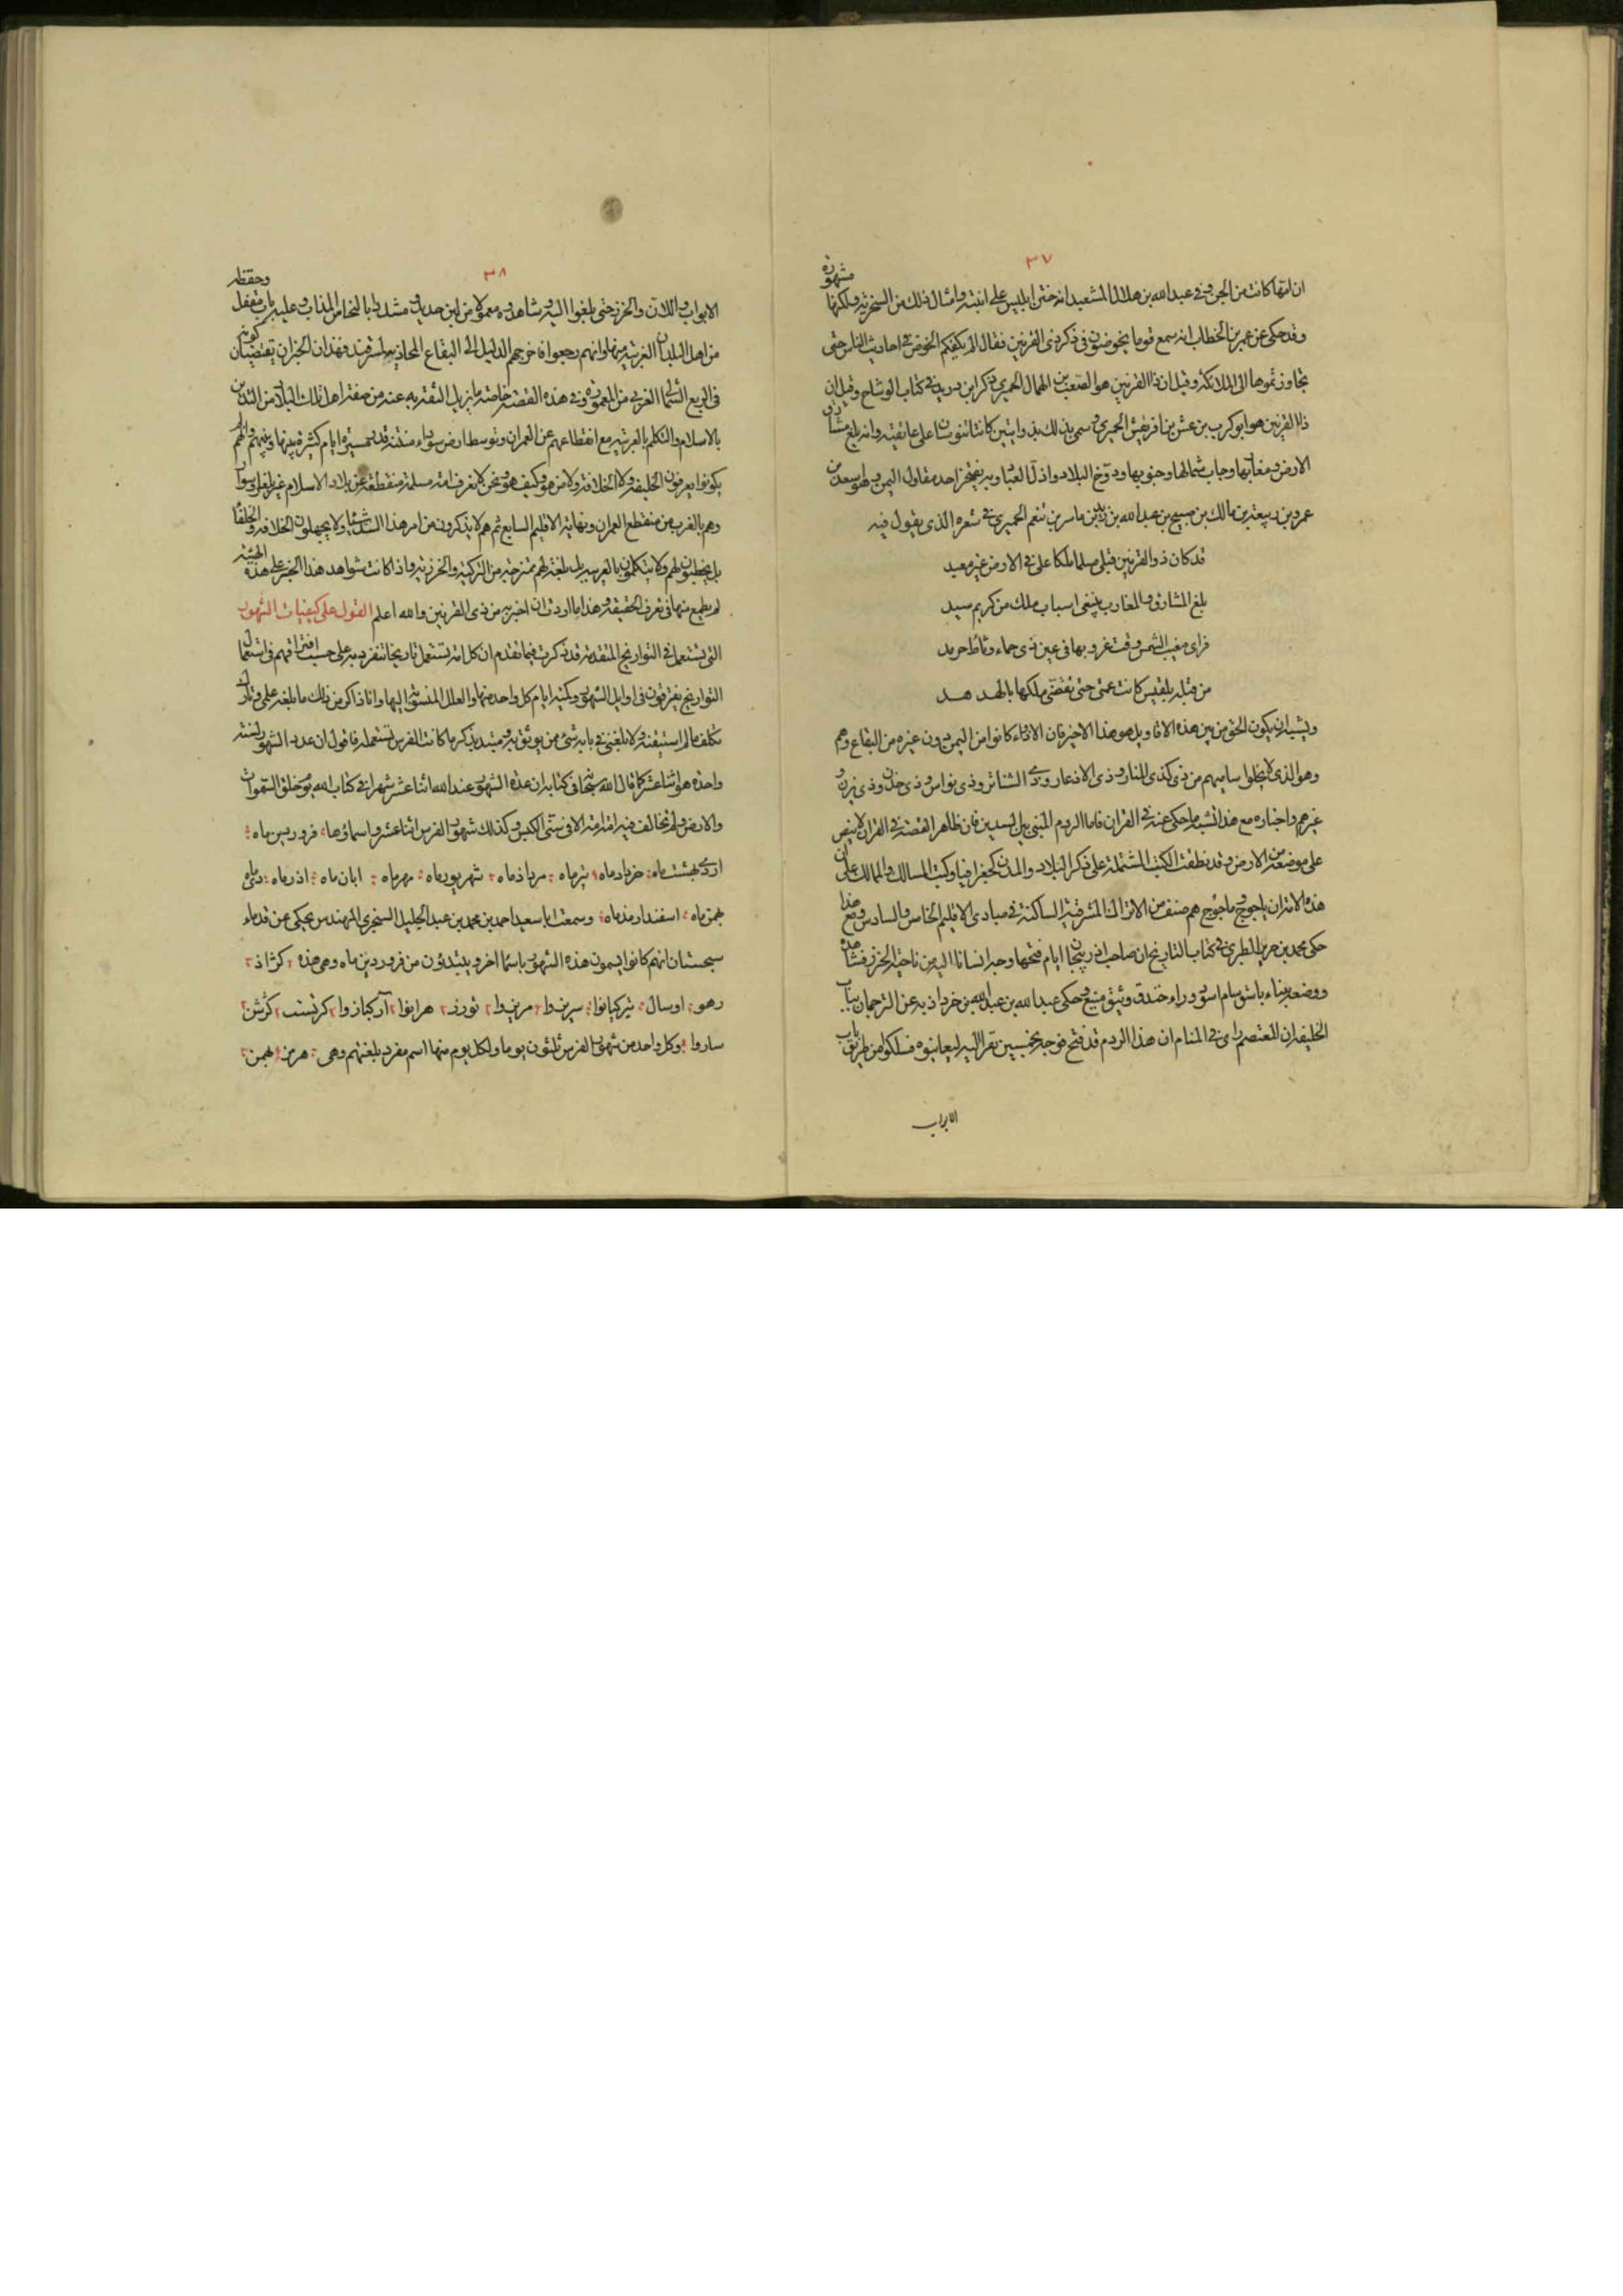 ٣٧
ان امها كانت من الجن وفى عبد الله بن هلال المشعبد انه ختن ابليس على ابنته وامثال ذلك من السخرية ولكنها مشهورة
وقد حكى عن عمر بن الخطاب انه سمع قوما يخوضون فى ذكر ذى القرنين فقال الم يكفيكم الخوض فى احاديث الناس حتى
تجاوزتموها الى الملائكة وقيل ان ذا القرنين هو الصعب بن الهمال الحميرى ذكر ابن دريد فى كتاب الوشاح وقيل ان
ذا القرنين هو ابو كرب بن عمش بن افريقش الحميرى سمى بذلك لذوابتين كانتا تنوسان على عاتقيه وانه بلغ مشارق
الارض ومغاربها وجاب شمالها وجنوبها ودوخ البلاد واذل العباد وبه يفتخر احد مقاول اليمن وهو اسعد بن
عمرو بن ربيعة بن مالك بن صبيح بن عبد الله بن زيد بن ياسر بن ينعم الحميرى فى شعره الذى يقول فيه
قد كان ذو القرنين قبلى مسلما ملكا على فى الارض غير معبد
بلغ المشارق والمغارب يبتغى اسباب ملك من كريم سيد
فراى مغيب الشمس وقت غروبها فى عين ذى حماء وثاط حرمد
من قبله بلقيس كانت عمتى حتى تقضى ملكها بالهدهد
ويشبه ان يكون الحق من بين هذه الاقاويل هو هذا الاخير فان الاذواء كانوا من اليمن دون غيره من البقاع وهم
وهو الذى لا يخلوا ساميهم من ذى كذى المنار وذى الاذعار وذى الشناتر وذى نواس وذى جدن وذى يزن و
غيرهم واخباره مع هذا تشبه ما حكى عنه فى القران فاما الردم المبنى بين السدين فان ظاهر القصة فى القران لا ينص
على موضعه من الارض وقد نطقت الكتب المشتملة على ذكر البلاد والمدن كجغرافيا وكتب المسالك والممالك على ان
هذه الامة اى ياجوج وماجوج هم صنف من الاتراك المشرقية الساكنة فى مبادى الاقليم الخامس والسادس ومع هذا
حكى محمد بن جرير الطبرى فى كتاب التاريخ ان صاحب اذربيجان ايام فتحها وجه انسانا اليه من ناحية الخزر فشاهده
ووصفه ببناء باسق سام اسود وراء خندق وثيق منيع وحكى عبد الله بن عبد الله بن خرداذبه عن الترجمان بباب
الخليفة ان المعتصم راى فى المنام ان هذا الردم قد فتح فوجه بخمسين نفرا اليه ليعاينوه فسلكوا من طريق باب
الابواب
٣٨
الابواب واللان والخزر حتى بلغوا اليه وشاهدوه معمولا من لبن حديد مشدد بالنحاس المذاب وعليه باب مقفل وحفظه
من اهل البلدان القريبة منها وانهم رجعوا فاخرجهم الدليل الى البقاع المحاذية لسمرقند فهذان الخبران يقتضيان كونه
فى الربع الشمالى الغربى من المعمورة وفى هذه القصة خاصة ما يزيل الثقة به عنه من صفة اهل تلك البلاد من التدين
بالاسلام والتكلم بالعربية مع انقطاعهم عن العمران وتوسط ارض سوداء منتنة قدر مسيرة ايام كثيرة بينها وبينهم وانهم لم
يكونوا يعرفون الخليفة ولا الخلافة ولا من هو وكيف هو ونحن لا نعرف امة مسلمة منقطعة عن بلاد الاسلام غير بلغار وسوار
وهم بالقرب من منقطع العمران ونهاية الاقليم السابع ثم هم لا يذكرون من امر هذا السد شيئا ولا يجهلون الخلافة والخلفا
بل يخطبون لهم ولا يتكلمون بالعربية بل بلغة لهم ممتزجة من التركية والخزرية واذا كانت شواهد هذا الخبر على هذه الهيئة
لم يطمع منها فى تعرف الحقيقة وهذا ما اردت ان اخبر به من ذى القرنين والله اعلم القول على كيفيات الشهور
التى تستعمل فى التواريخ المتقدمة قد ذكرت فيما تقدم ان كل امة تستعمل تاريخا تنفرد به على حسب افتراقهم فى استعمال
التواريخ يفترقون فى اوايل الشهور وكمية ايام كل واحد منها والعلل المنسوبة اليها وانا ذاكر من ذلك ما بلغه علمى وتارك
تكلف ما لم استيقنه ولا بلغنى فى بابه شئ ممن يوثق به ومبتدئ بذكر ما كانت الفرس تستعمله فاقول ان عدد الشهور لسنة
واحدة هو اثنا عشر كما قال الله سبحانه فى كتابه ان عدة الشهور عند الله اثنا عشر شهرا فى كتاب الله يوم خلق السموات
والارض ولم تخالف فيه امة امة الا فى سنى الكبس وكذلك شهور الفرس اثنا عشر واسماؤها فروردين ماه
اردى بهشت ماه خرداد ماه تير ماه مرداذ ماه شهريور ماه مهر ماه ابان ماه اذر ماه دى ماه
بهمن ماه اسفندارمذ ماه وسمعت ابا سعيد احمد بن محمد بن عبد الجليل السنجرى المهندس يحكى عن قدماء
سجستان انهم كانوا يسمون هذه الشهور باسماء اخر ويبتدؤن من فروردين ماه وهى هذه كواذ
رهو اوسال تيركيانوا سريزوا مريزوا توزر هرانوا آركبازوا كزشت كزشن
ساروا وكل واحد من شهور الفرس ثلثون يوما ولكل يوم منها اسم مفرد بلغتهم وهى هرمز بهمن